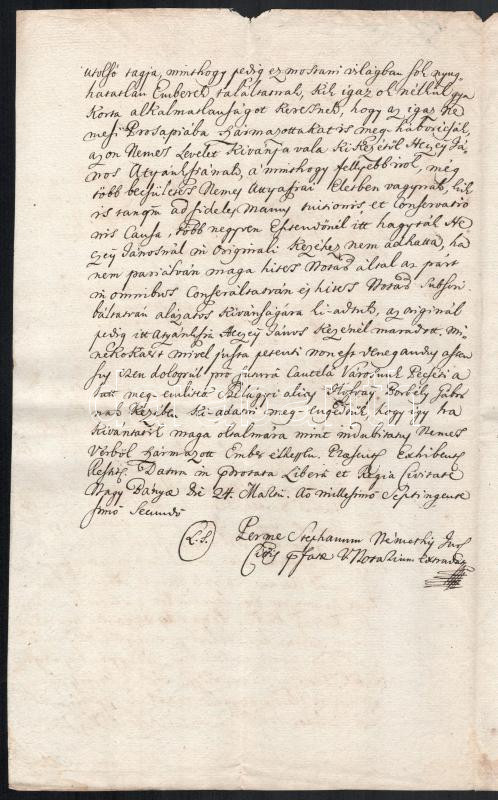 utolsó tagja, minthogy pedig ez mostani világban sok nyug-
hatatlan Emberek találtatnak, kik igaz ok nélkül gya
korta alkalmatlanságot keresnek, hogy az igaz Ne
mesi Prosapiába származottakat is meg háborícsák,
azon Nemes Levelet kivánja vala ki kezétől Aczéj Já-
nos Atyánkfiának, a minthogy fellyebb irok, még
több becsületes Nemes Attyafiai életben vagynak, kik
is tanqm ad fideles manus tuitionis, et Conservatio
nis Causa, több negyven Esztendőnél itt hagyták Ac
zéj Jánosnál in Originali kezéhez nem adhatta, ha
nem pariálván maga hites Notar által az part
in omnibus Conferáltatván és hites Notar Subscri
báltatván alázatos kivánságára ki-adtuk, az originál
pedig itt Atyánkfia Aczéj János kezénél maradott. Mi-
nekokáért mivel justa petenti non est denegandus assen
sus ezen dologrúl pro futura Cautela Városunk Pecséti a
latt meg-emlitett Szilágyi aliás Borbély Gábor
nak kezében ki-adatni meg-engedtük, hogy igy ha
kivántatik maga oltalmára mint indubitatus Nemes
Vérből származott Ember élhessen. Præsentes Exhibentes
Datum in prætacta Libera et Regia Civitate
Nagy Bánya Die 24. Martii. Ao millesimo Septingente
simo Secundo
L.S.
Perme Stephanum Némethij Jur
Ctis pfatæ V. Notarium Extradat